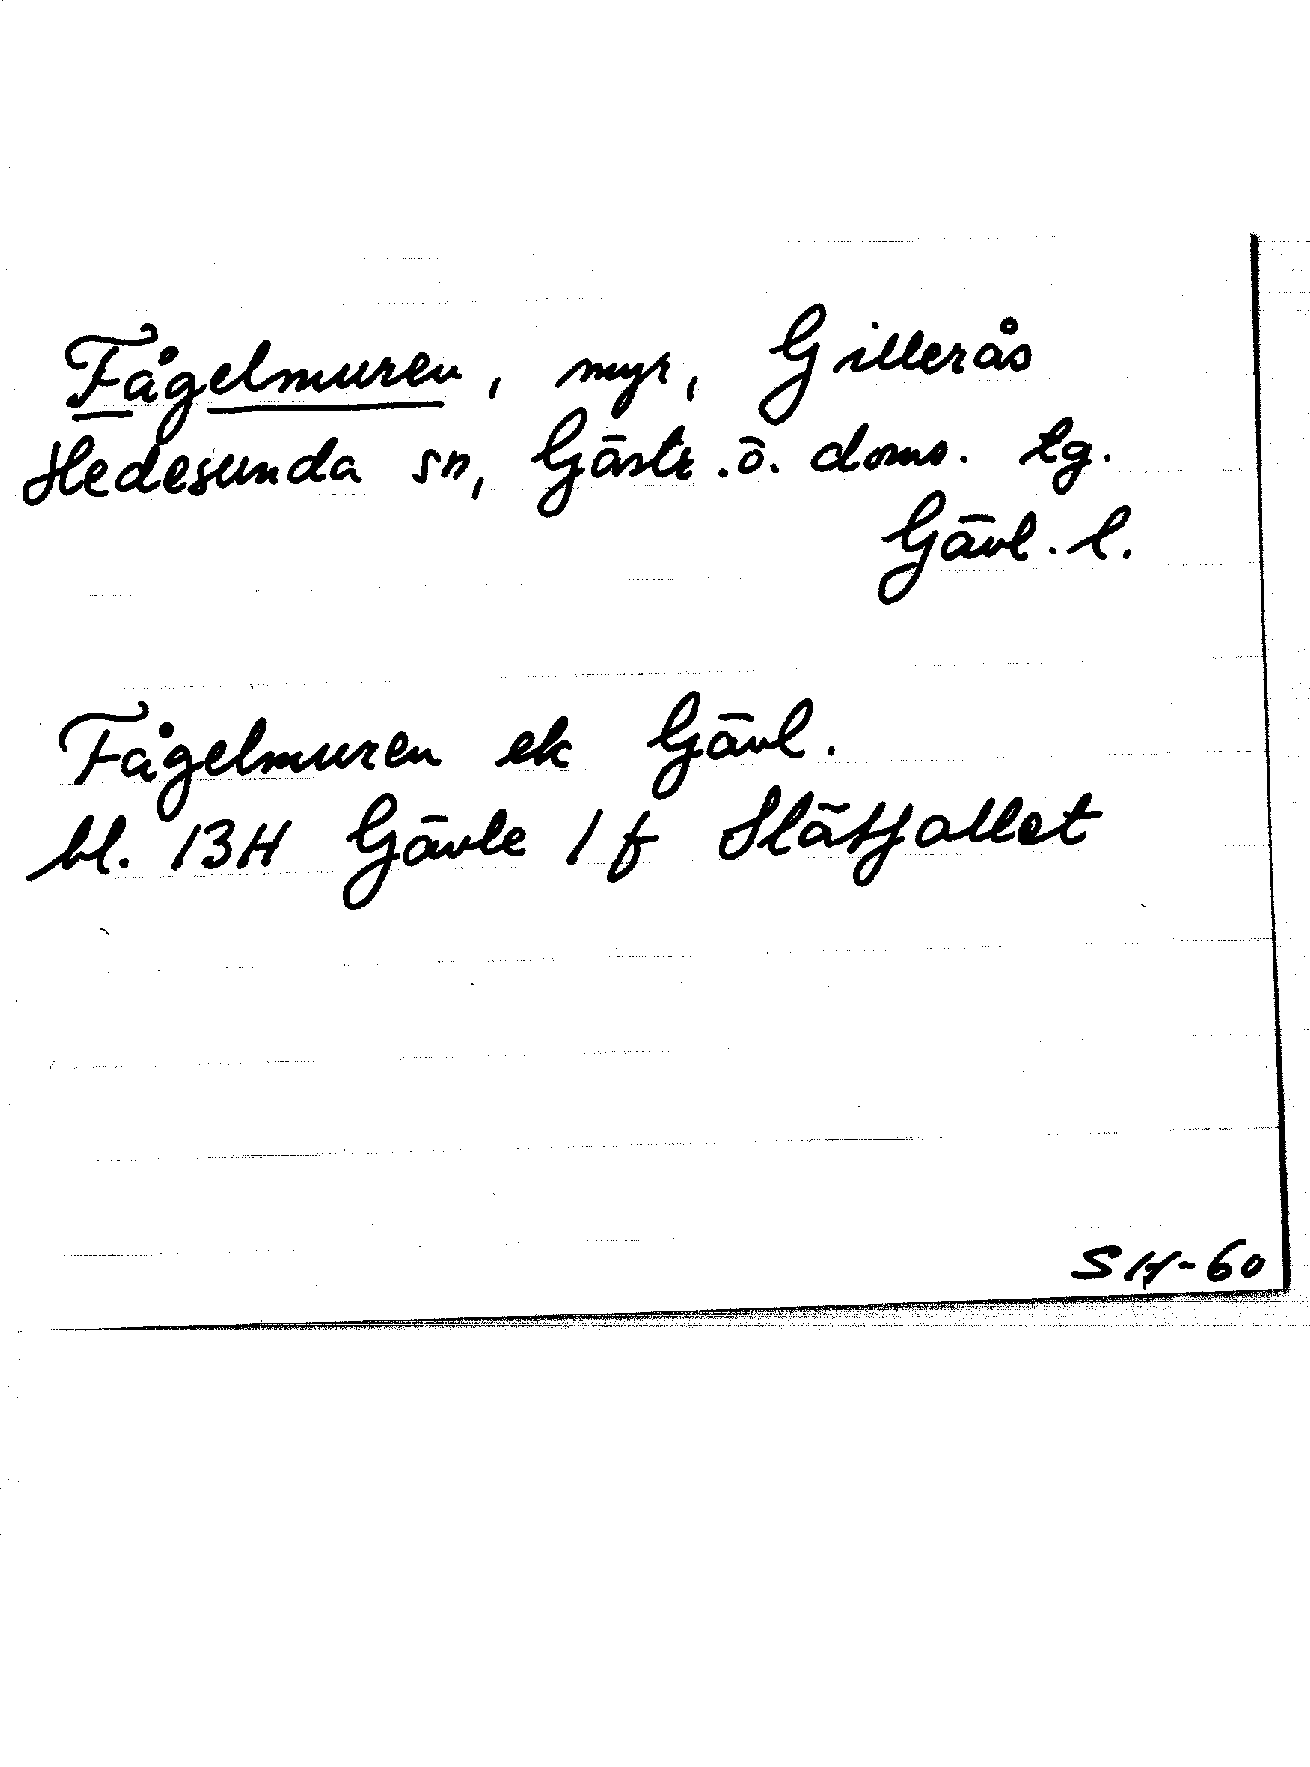 Fågelmuren, myr, Gillerås
Hedesunda sn, Gästr. ö. doms. tg.
Gävl. l.
Fågelmuren ek Gävl.
bl. 13H Gävle 1 f Slåtfallet
SH-60